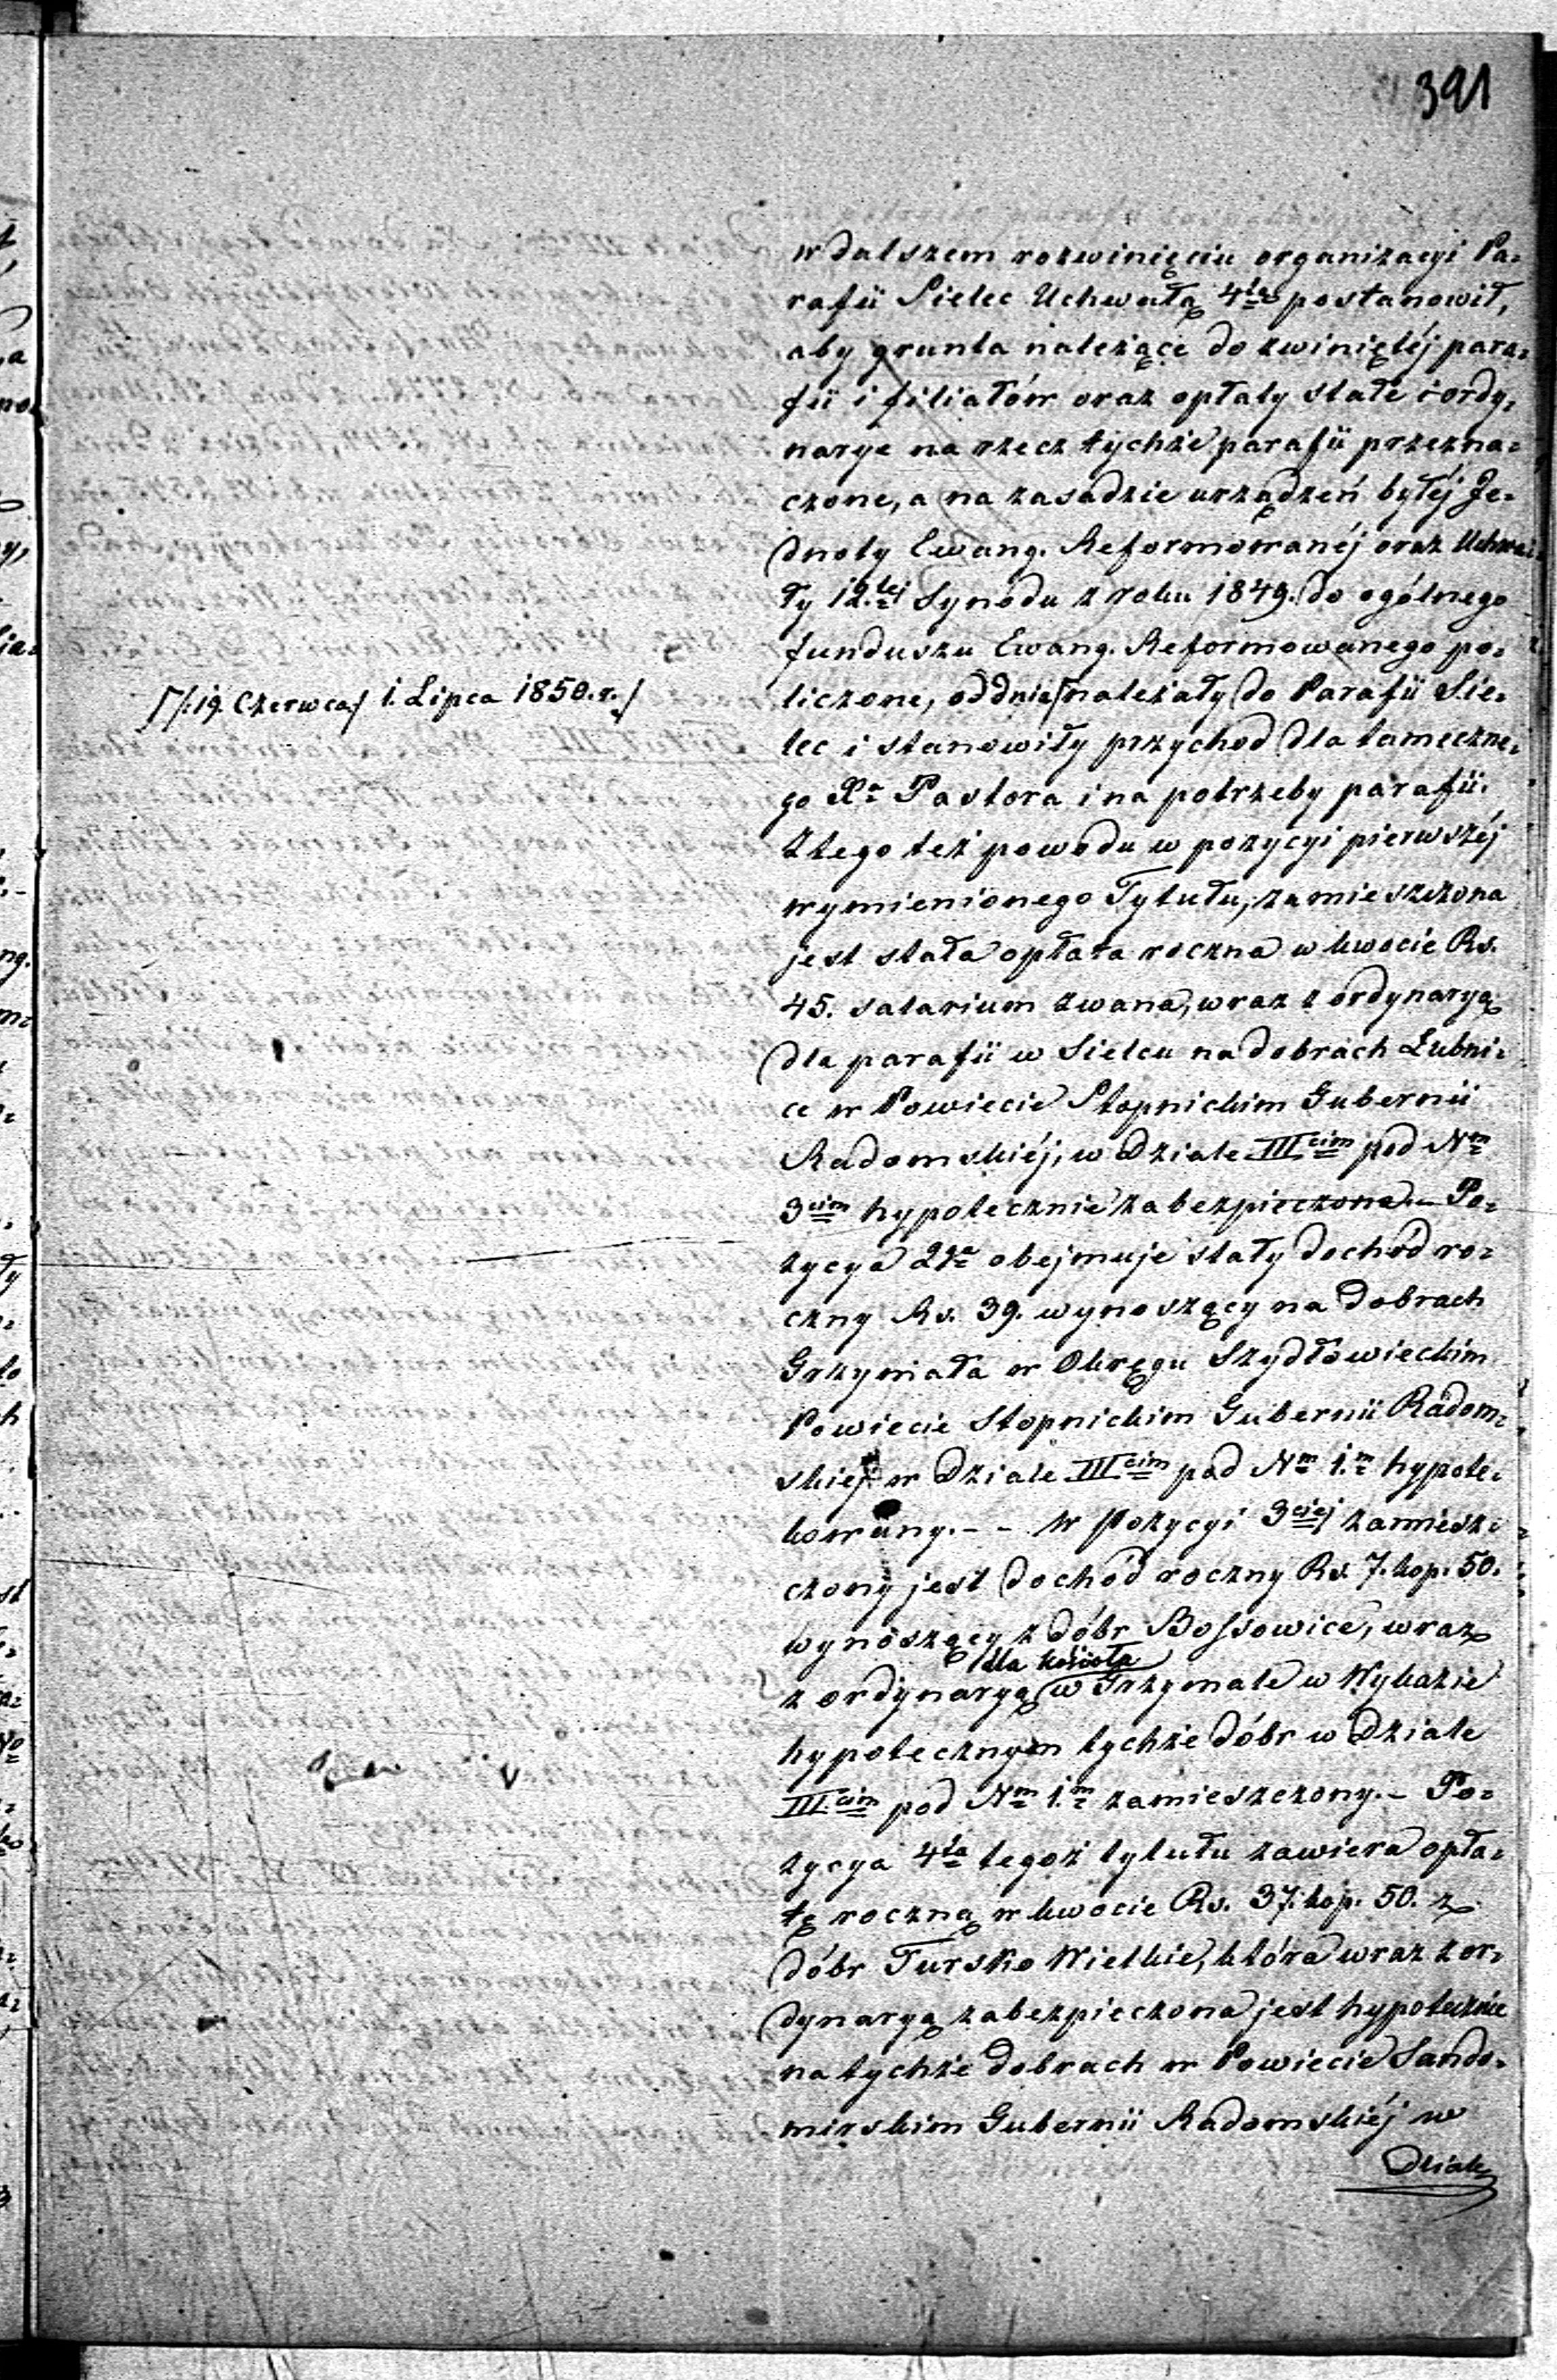 391
w dalszem rozwinięciu organizacyi Pa=
rafii Sielec Uchwałą 4tą postanowił,
aby grunta należące do zwiniętéj para=
fii i filiałów oraz opłaty stałe i ordy=
narye na rzecz tychże parafii przezna=
czone, a na zasadzie urządzeń byłéj Je=
dnoty Ewang. Reformowanéj oraz Uchwa=
ły 12.tej Synodu z roku 1849. do ogólnego
funduszu Ewang. Reformowanego po=
liczone, od dnia ⌈ należały do Parafii Sie=
⌈/:19. Czerwca/ 1. Lipca 1850. r./
lec i stanowiły przychod dla tameczne=
go Xa Pastora i na potrzeby parafii.
Z tego też powodu w pozycyi pierwszéj
wymienionego Tytułu, zamieszczona
jest stała opłata roczna w kwocie Rs.
45. salarium zwana, wraz z ordynaryą
dla parafii w Sielcu na dobrach Łubni=
ce w Powiecie Stopnickim Gubernii
Radomskiéj, w Dziale IIIcim pod Nm
3cim hypotecznie zabezpieczona.— Po=
zycya 2ga obejmuje stały dochód ro=
czny Rs. 39. wynoszący na dobrach
Grzymała w Okręgu Szydłowieckim
Powiecie Stopnickim Gubernii Radom=
skiej w Dziale IIIcim pod Nm 1.m hypote=
kowany.— — W pozycyi 3ciej zamiesz=
czony jest dochód roczny Rs. 7. kop. 50.
wynoszący z dóbr Bossowice, wraz
dla kościoła
z ordynaryą w Grzymale w Wykazie
hypotecznym tychże dóbr w Dziale
III.cim pod Nm 1.m zamieszczony.— Po=
zycya 4ta tegoż tytułu zawiera opła=
tę roczną w kwocie Rs. 37. kop. 50. z
dóbr Tursko Wielkie, która wraz z or=
dynaryą zabezpieczona jest hypotecznie
na tychże dobrach w Powiecie Sando=
mirskim Gubernii Radomskiéj w
Dziale